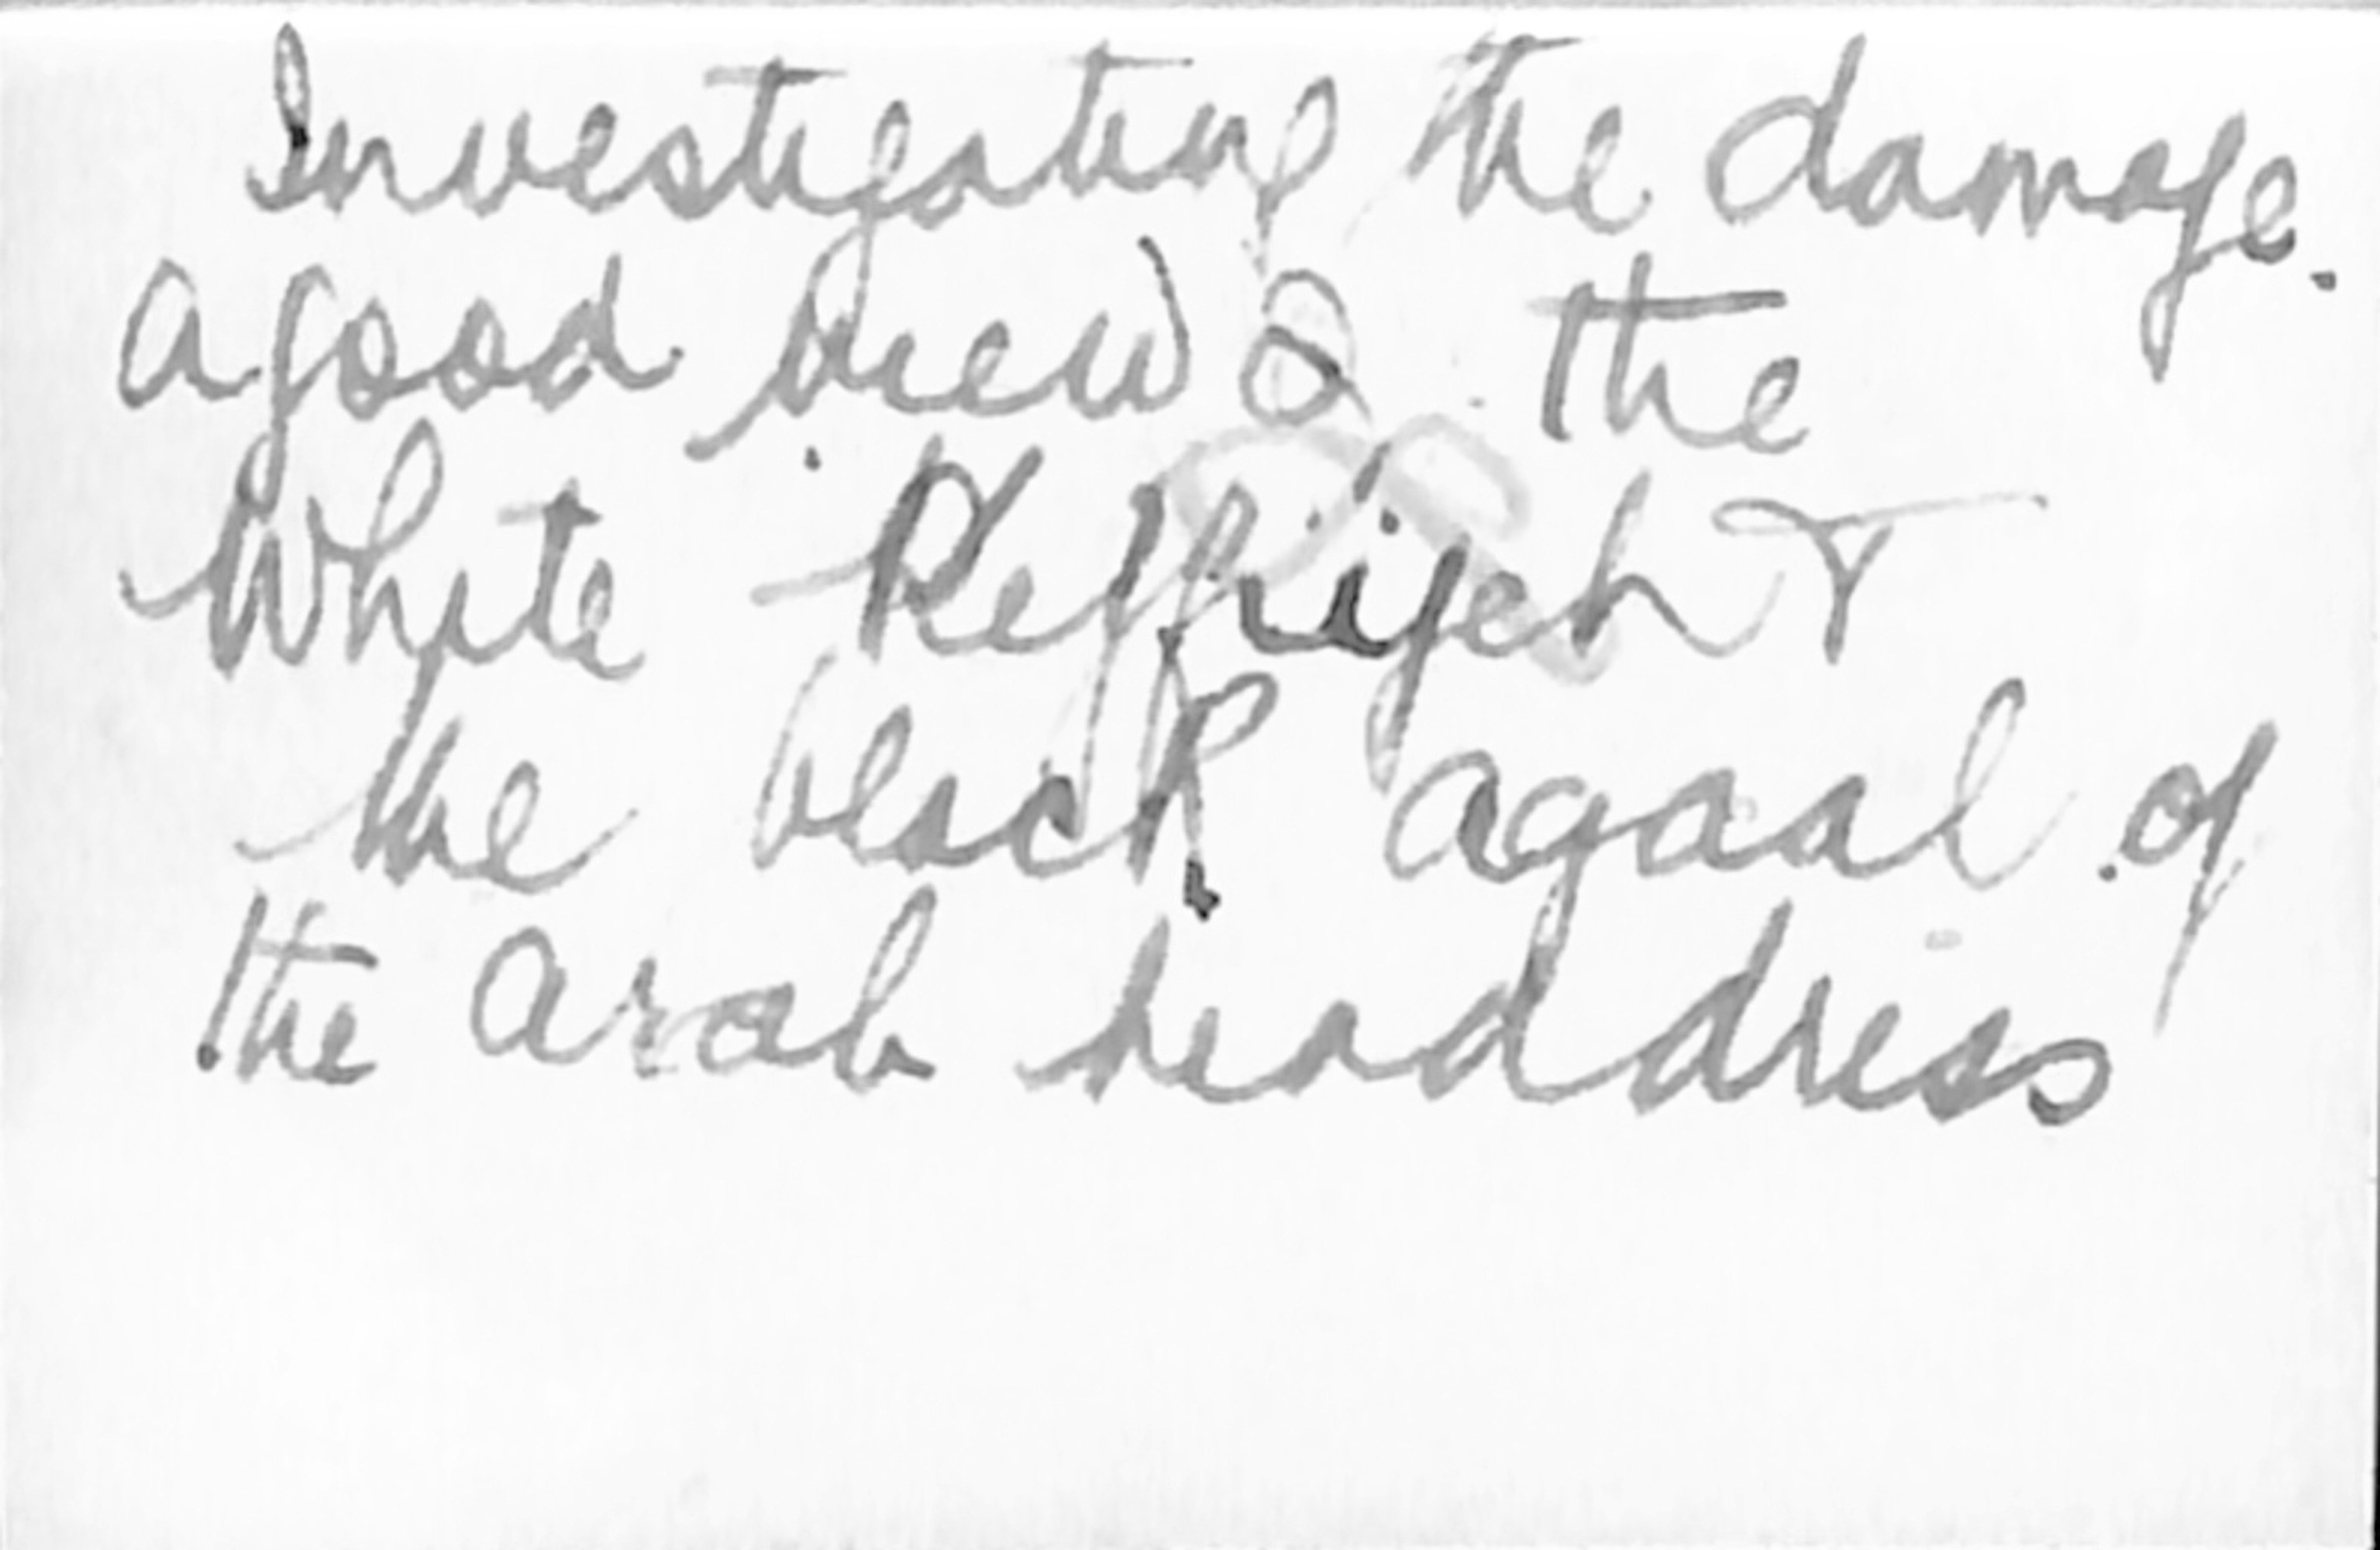 Investigating the damage.
a good view of the
White Keffiyeh &
the black agaal of
the Arab headdress